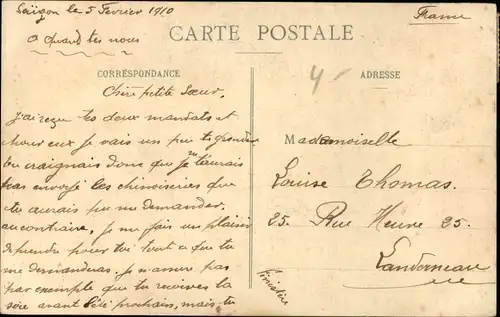 Saïgon le 5 Février 1910
a quand tes nous
France
CARTE POSTALE
CORRESPONDANCE
ADRESSE
Chère petite Sœur,
j'ai reçu tes deux mandats et
pour eux je vais un peu te gronder
tu craignais donc que je t'aurais
pas envoyé les chinoiseries que
tu aurais pu me demander.
au contraire, je me fais un plaisir
de prendre pour toi tout ce que tu
me demanderas. Je n'assure pas
par exemple que tu recevras la
soie avant l'été prochain, mais tu
Mademoiselle
Louise Thomas.
25. Rue Neuve 25.
Landerneau
Finistère